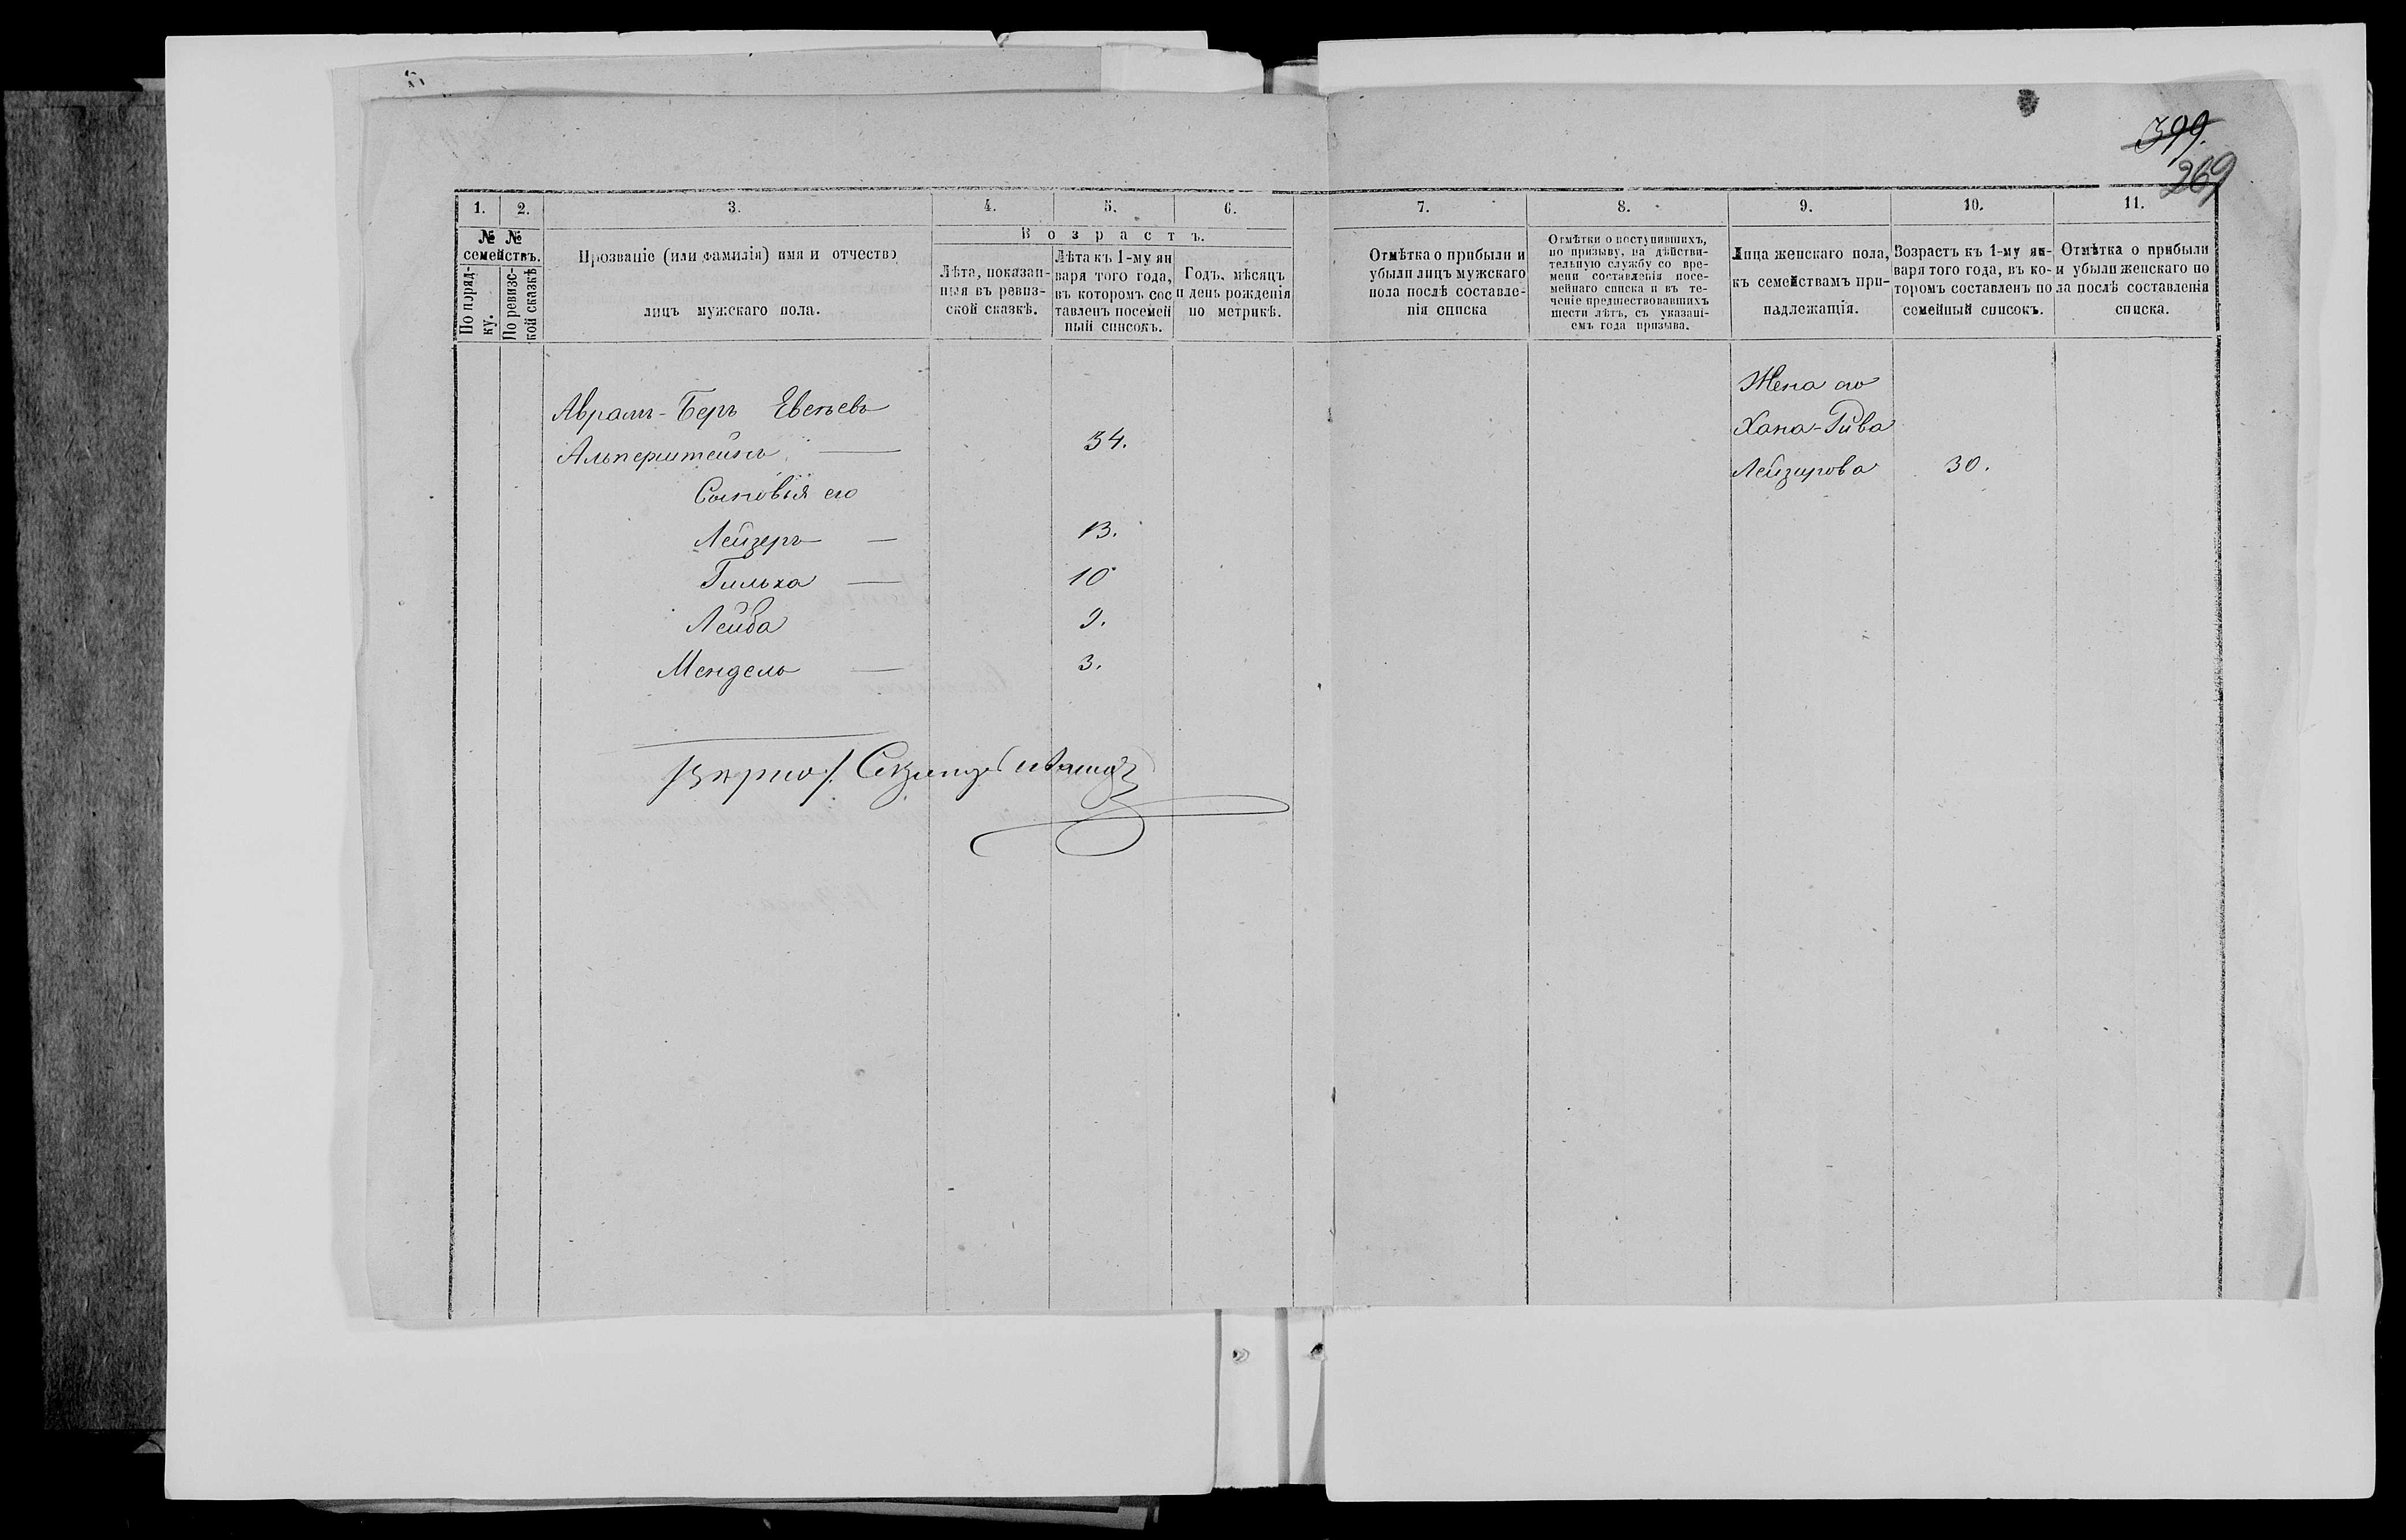 399.
269
1. 2. 3. 4. 5. 6. 7. 8. 9. 10. 11.
№ №
семействъ.
По поряд-
ку.
По ревизс-
кой сказкѣ
Прозваніе (или фамилія) имя и отчество
лицъ мужскаго пола.
Возрастъ.
Лѣта, показан-
ныя въ ревиз-
ской сказкѣ.
Лѣта къ 1-му ян
варя того года,
въ которомъ сос
тавленъ посемей
ный списокъ.
Годъ, мѣсяцъ
и день рожденія
по метрикѣ.
Отмѣтка о прибыли и
убыли лицъ мужскаго
пола послѣ составле-
нія списка
Отмѣтки о поступившихъ,
по призыву, на дѣйстви-
тельную службу со вре-
мени составленія посе-
мейнаго списка и въ те-
ченіе предшествовавшихъ
шести лѣтъ, съ указані-
емъ года призыва.
Лица женскаго пола,
къ семействамъ при-
надлежащія.
Возрастъ къ 1-му ян-
варя того года, въ ко-
торомъ составленъ по
семейный списокъ.
Отмѣтка о прибыли
и убыли женскаго по
ла послѣ составленія
списка.
Абрамъ-Беръ
Альперштейнъ — 34.
Сыновья его
Лейзеръ — 13.
Гилька — 10
Лейба 9.
Мендель — 3.
Жена его
Хана-Рива
Лейзерова 30.